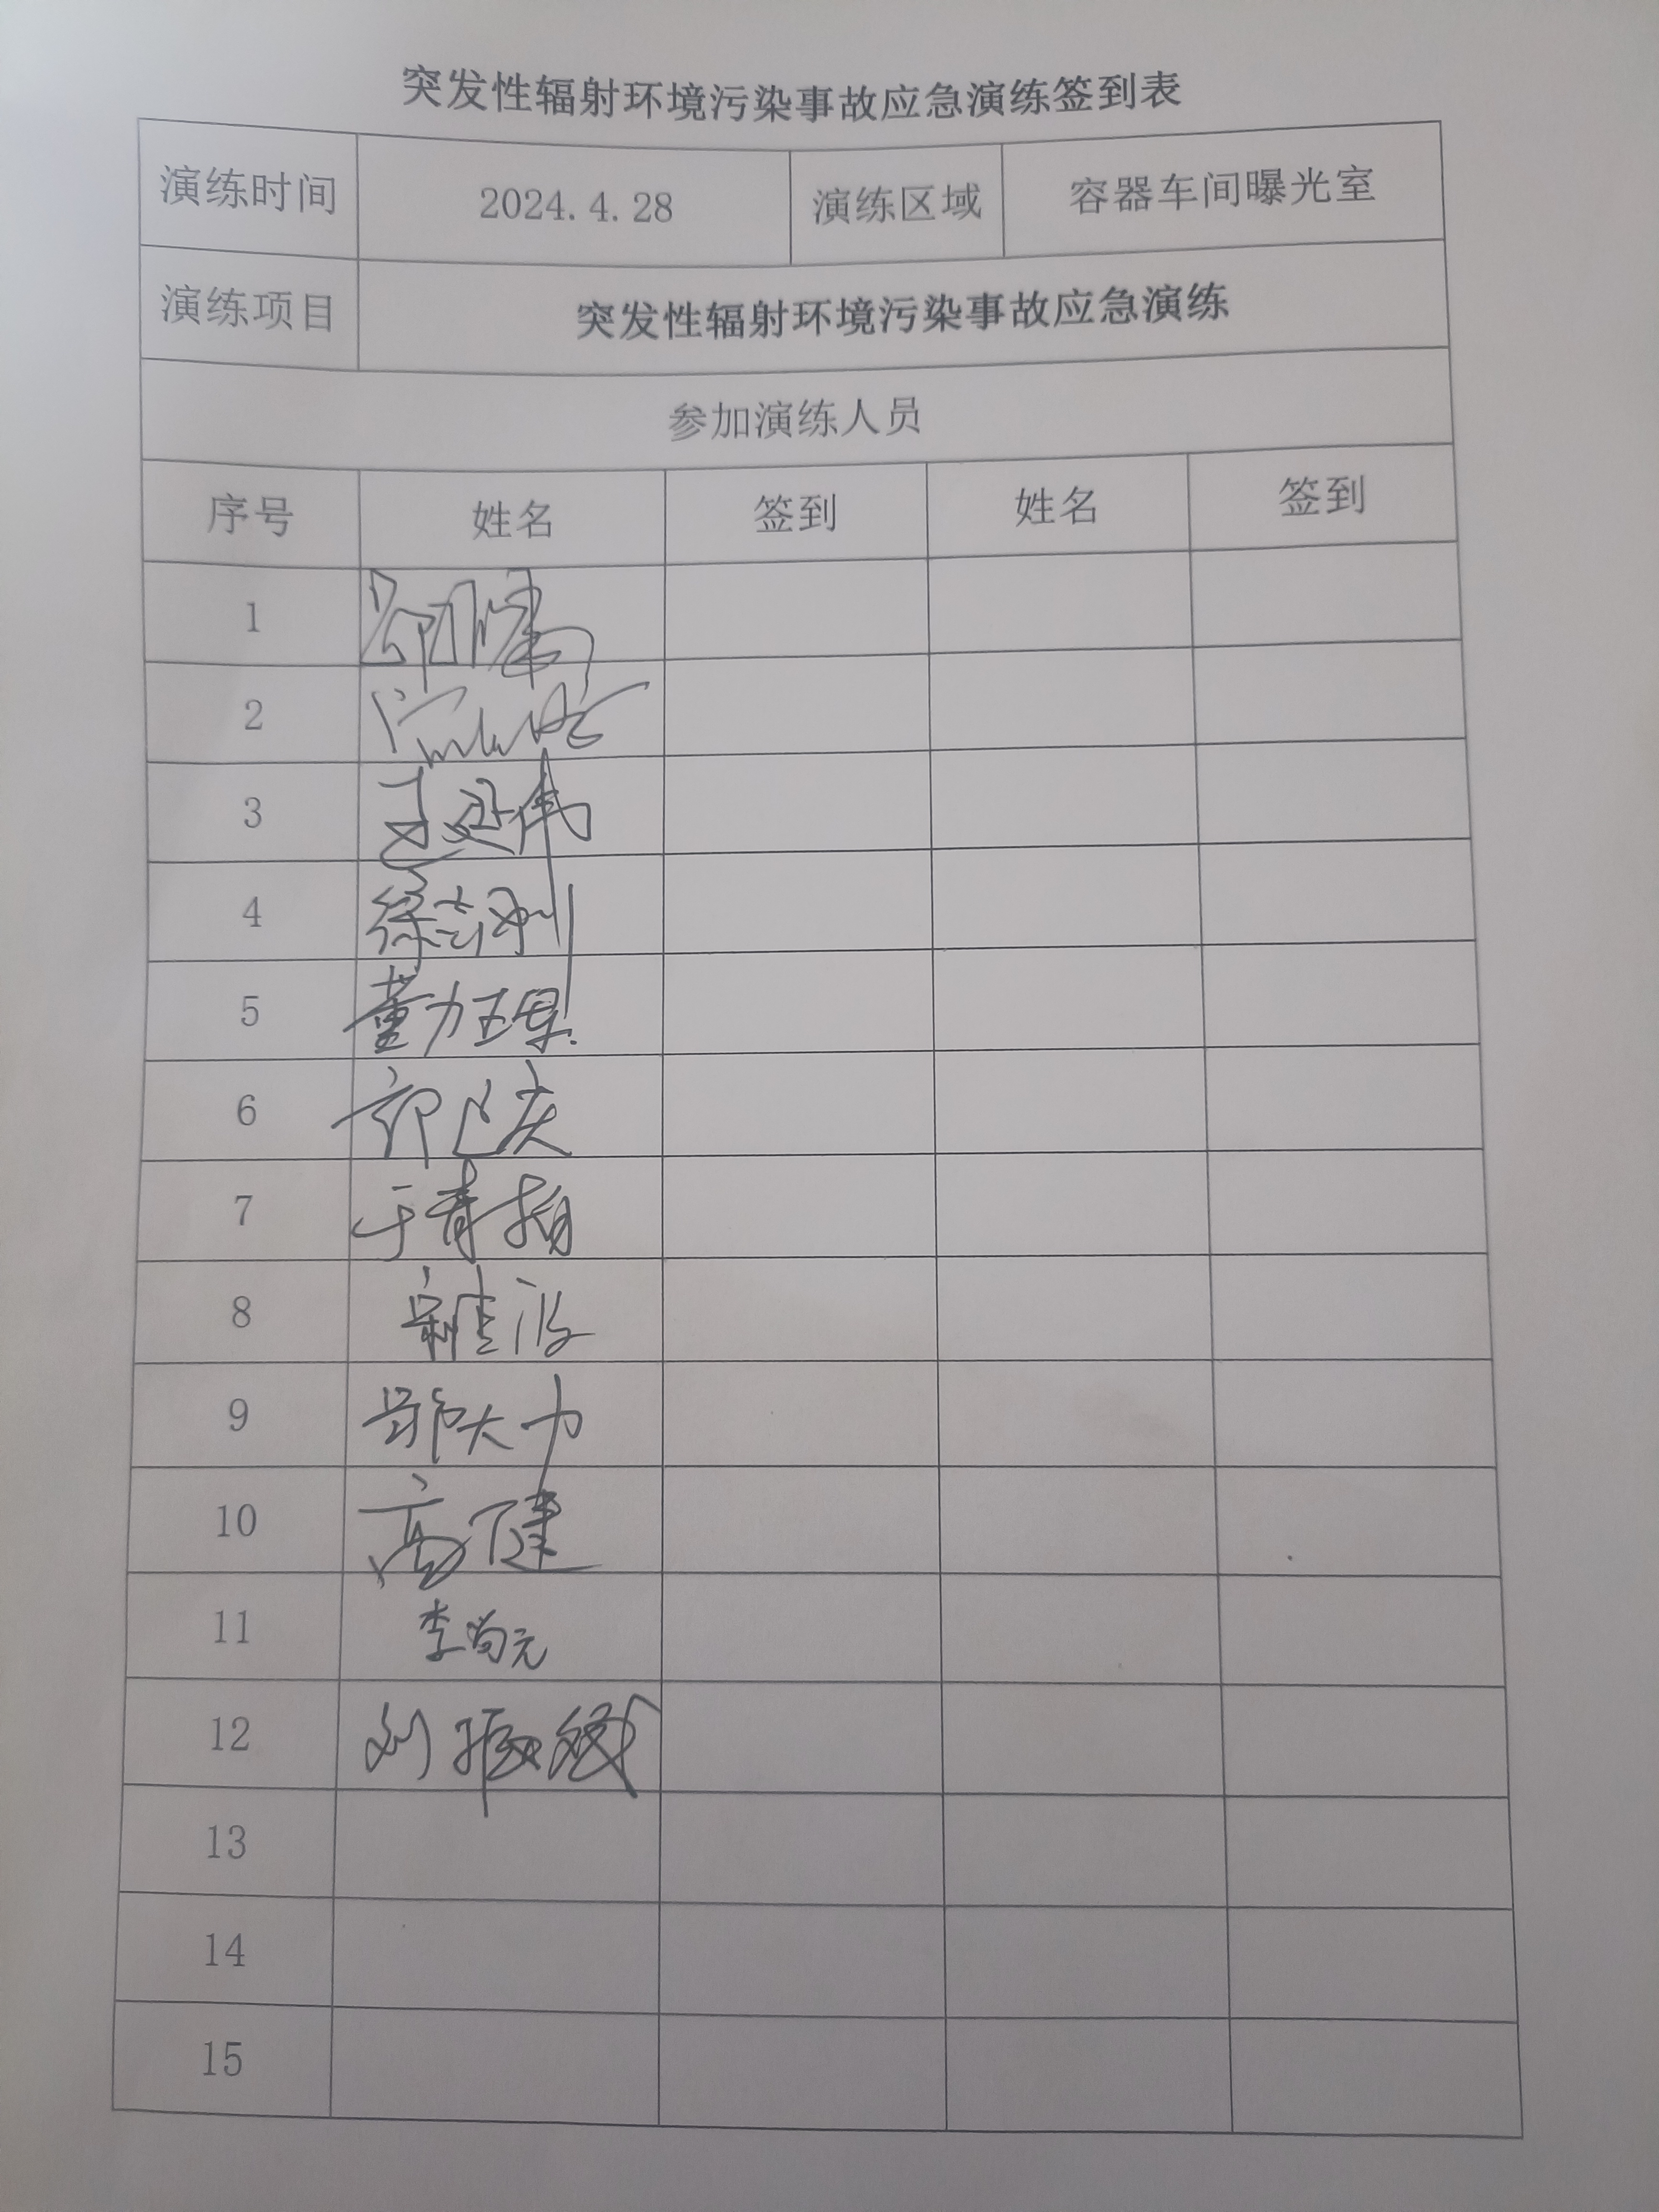 突发性辐射环境污染事故应急演练签到表
演练时间 2024.4.28 演练区域 容器车间曝光室
演练项目 突发性辐射环境污染事故应急演练
参加演练人员
序号 姓名 签到 姓名 签到
1
2
3
4 徐志刚
5 董力
6
7 于青
8
9 郭大力
10 高健
11 李尚元
12 刘振斌
13
14
15